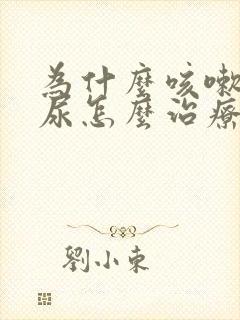 為什麼咳嗽
尿怎麼治療
劉小東